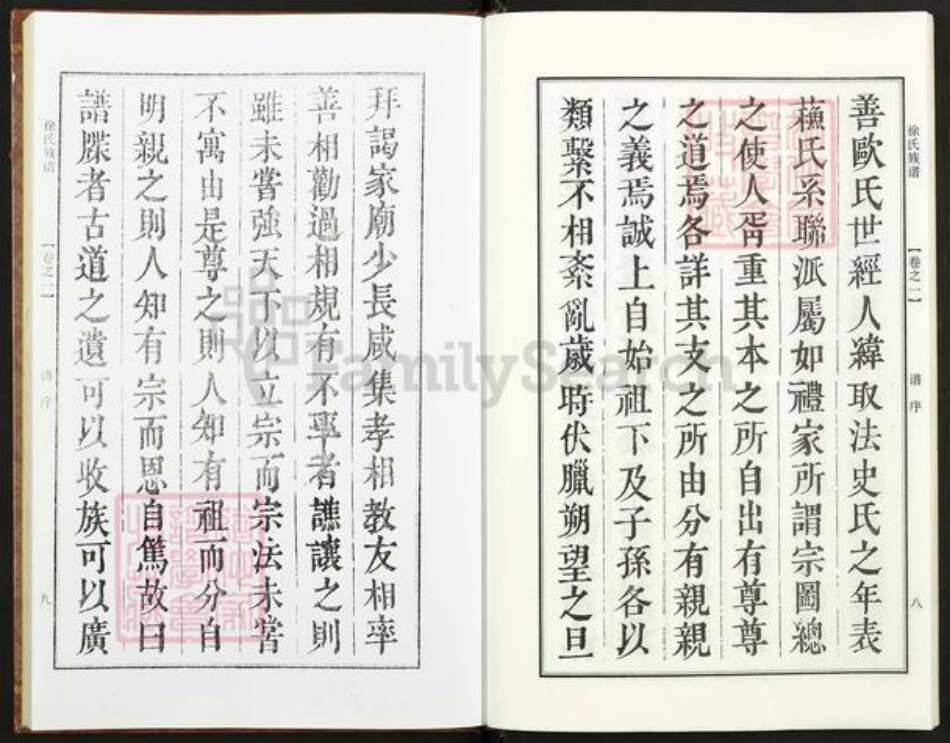 徐氏族谱
【卷之一】
谱序
八
善歐氏世經人緯取法史氏之年表
蘓氏系聯派屬如禮家所謂宗圖總
之使人胥重其本之所自出有尊尊
之道焉各詳其支之所由分有親親
之義焉誠上自始祖下及子孫各以
類繫不相紊亂歲時伏臘朔望之旦
拜謁家廟少長咸集孝相教友相率
善相勸過相規有不率者譙讓之則
雖未嘗強天下以立宗而宗法未嘗
不寓由是尊之則人知有祖而分自
明親之則人知有宗而恩自篤故曰
譜牒者古道之遺可以收族可以廣
徐氏族谱
【卷之一】
谱序
九
FamilySearch